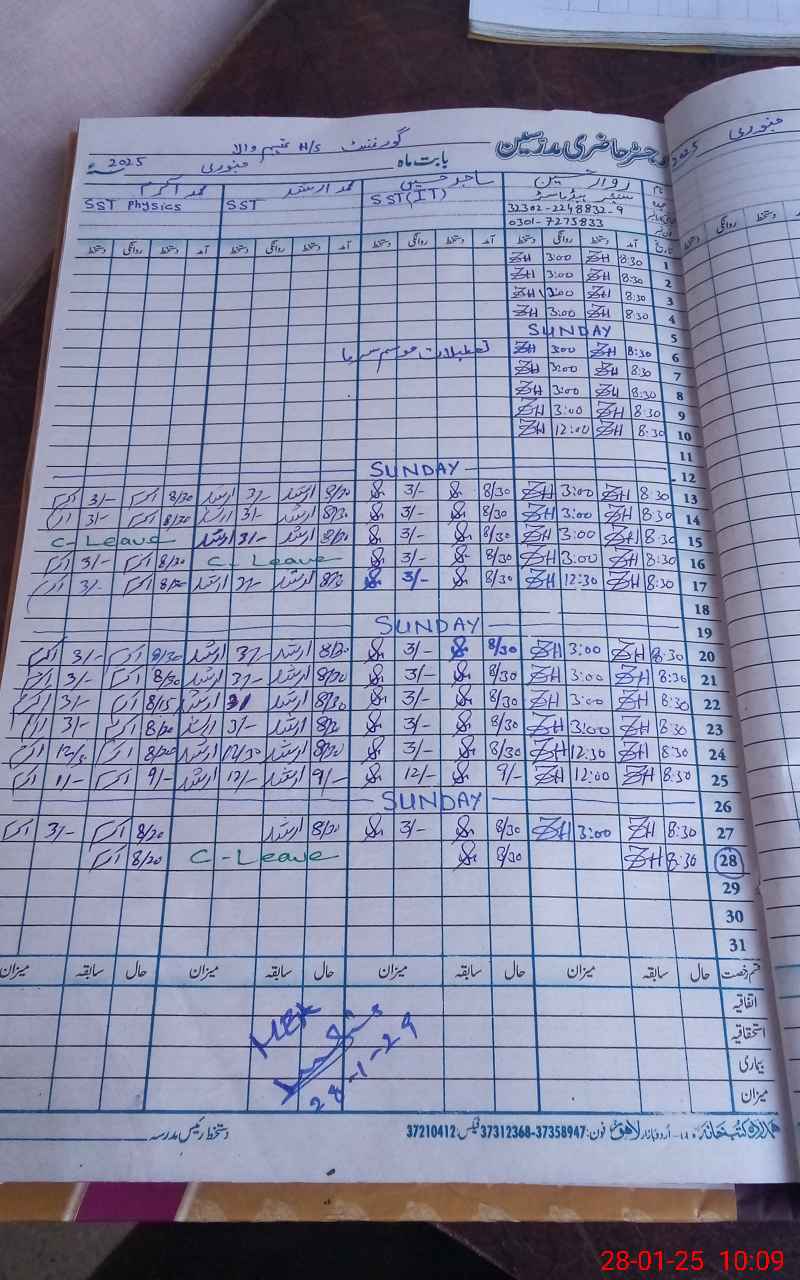 رجسٹر حاضری مدرسین
گورنمنٹ H/S
بابت ماہ جنوری 2025
محمد اکرم محمد ارشد ساجد حسین
SST Physics SST SST(IT)
32302-2248832-9
0301-7275833
دستخط روانگی دستخط آمد دستخط روانگی دستخط آمد دستخط روانگی دستخط آمد دستخط روانگی دستخط آمد تاریخ
ZH 3:00 ZH 8:30 1
ZH 3:00 ZH 8:30 2
ZH 3:00 ZH 8:30 3
ZH 3:00 ZH 8:30 4
SUNDAY 5
تعطیلات موسم سرما ZH 3:00 ZH 8:30 6
ZH 3:00 ZH 8:30 7
ZH 3:00 ZH 8:30 8
ZH 3:00 ZH 8:30 9
ZH 12:00 ZH 8:30 10
11
SUNDAY 12
اکرم 3/- اکرم 8/30 ارشد 3/- ارشد 8/30 3/- 8/30 ZH 3:00 ZH 8:30 13
3/- اکرم 8/30 ارشد 3/- ارشد 8/30 3/- 8/30 ZH 3:00 ZH 8:30 14
C-Leave ارشد 3/- ارشد 8/30 3/- 8/30 ZH 3:00 ZH 8:30 15
اکرم 3/- اکرم 8/30 C-Leave 3/- 8/30 ZH 3:00 ZH 8:30 16
اکرم 3/- اکرم ارشد 3/- ارشد 8/30 3/- 8/30 ZH 12:30 ZH 8:30 17
18
SUNDAY 19
اکرم 3/- اکرم 8/30 ارشد 3/- ارشد 8/30 3/- 8/30 ZH 3:00 ZH 8:30 20
اکرم 3/- اکرم 8/30 ارشد 3/- ارشد 8/30 3/- 8/30 ZH 3:00 ZH 8:30 21
اکرم 3/- اکرم 8/15 ارشد ارشد 8/30 3/- 8/30 ZH 3:00 ZH 8:30 22
اکرم 3/- اکرم 8/20 ارشد 3/- ارشد 8/30 3/- 8/30 ZH 3:00 ZH 8:30 23
اکرم اکرم 8/20 ارشد 12/30 ارشد 8/30 3/- 8/30 ZH 12:30 ZH 8:30 24
اکرم 11/- اکرم 9/- ارشد 12/- ارشد 9/- 12/- 9/- ZH 12:00 ZH 8:30 25
SUNDAY 26
اکرم 3/- اکرم 8/20 ارشد 8/30 3/- 8/30 ZH 3:00 ZH 8:30 27
اکرم 8/20 C-Leave 8/30 ZH 8:30 28
29
30
31
میزان سابقہ حال میزان سابقہ حال میزان سابقہ حال میزان سابقہ حال قسم رخصت
اتفاقیہ
استحقاقیہ
بیماری
میزان
دستخط رئیس مدرسہ
ہمدرد کتب خانہ 11- اردو بازار لاہور فون: 37358947-37312368 فیکس: 37210412
جنوری 2025
دستخط روانگی دستخط
28-01-25 10:09